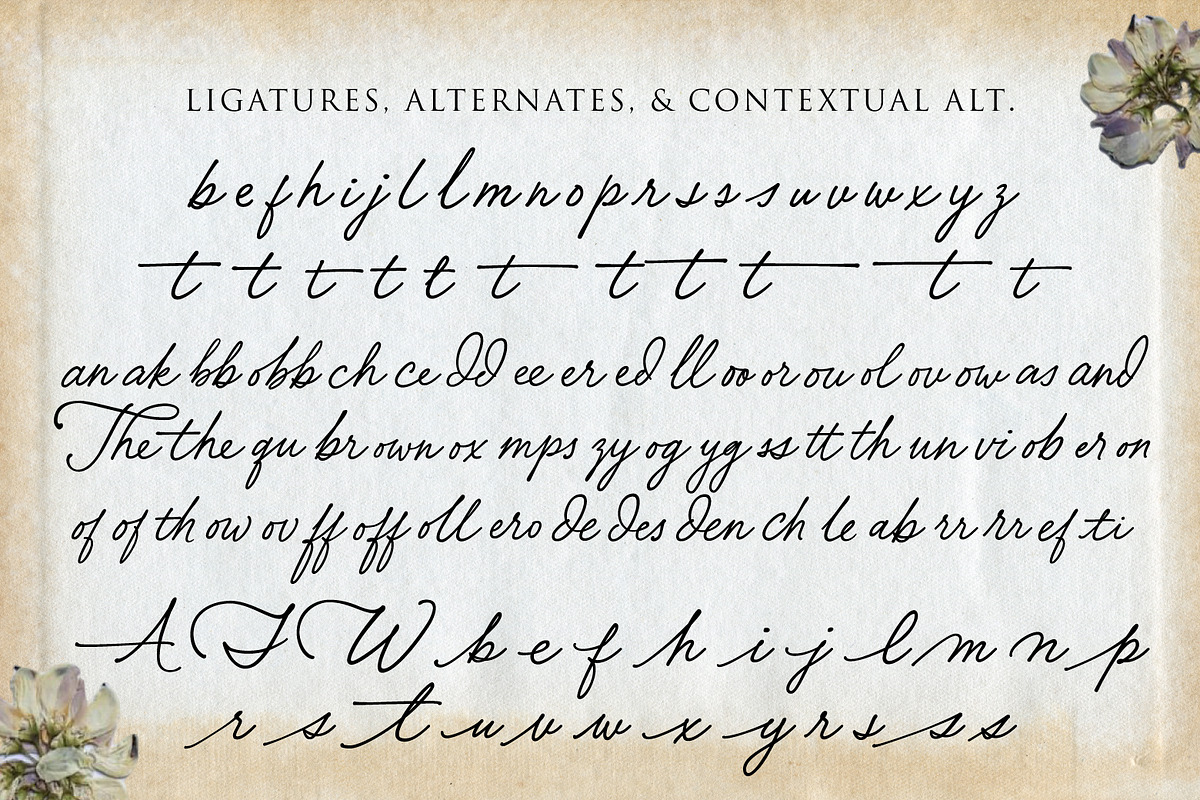 LIGATURES, ALTERNATES, & CONTEXTUAL ALT.
b e f h i j l l m n o p r s s s u v w x y z
t t t t t t t t t t t
an ak bb obb ch ce dd ee er ed ll oo or ou ol ov ow as and
The the qu br own ox mps zy og yg ss tt th un vi ob er on
of of th ow ov ff off oll ero de des den ch le ab rr rr ef ti
A T W b e f h i j l m n p
r s t u v w x y r s s s